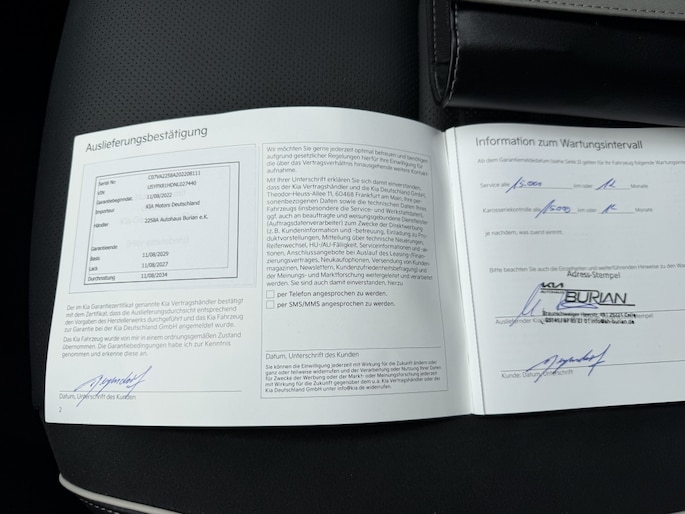 Auslieferungsbestätigung
Serial Nr. C07VA2258A202208111
VIN U5YPX81HDNL027440
Garantiebeginndat. 11/08/2022
Importeur KIA Motors Deutschland
Händler 2258A Autohaus Burian e.K.
Garantieende
Basis 11/08/2029
Lack 11/08/2027
Durchrostung 11/08/2034
Der im Kia Garantiezertifikat genannte Kia Vertragshändler bestätigt
mit dem Zertifikat, dass die Auslieferungsdurchsicht entsprechend
den Vorgaben des Herstellerwerks durchgeführt und das Kia Fahrzeug
zur Garantie bei der Kia Deutschland GmbH angemeldet wurde.
Das Kia Fahrzeug wurde von mir in einem ordnungsgemäßen Zustand
übernommen. Die Garantiebedingungen habe ich zur Kenntnis
genommen und erkenne diese an.
Datum, Unterschrift des Kunden
2
Wir möchten Sie gerne jederzeit optimal betreuen und benötigen
aufgrund gesetzlicher Regelungen hierfür Ihre Einwilligung für
die über das Vertragsverhältnis hinausgehende weitere Kontakt-
aufnahme.
Mit Ihrer Unterschrift erklären Sie sich damit einverstanden,
dass der Kia Vertragshändler und die Kia Deutschland GmbH,
Theodor-Heuss-Allee 11, 60486 Frankfurt am Main, Ihre per-
sonenbezogenen Daten sowie die technischen Daten Ihres
Fahrzeugs (insbesondere die Service- und Werkstattdaten),
ggf. auch an beauftragte und weisungsgebundene Dienstleister
(Auftragsdatenverarbeiter) zum Zwecke der Direktwerbung
(z. B. Kundeninformation und -betreuung, Einladung zu Pro-
duktvorstellungen, Mitteilung über technische Neuerungen,
Reifenwechsel, HU-/AU-Fälligkeit, Serviceinformationen und -ak-
tionen, Anschlussangebote bei Auslauf des Leasing-/Finan-
zierungsvertrages, Neukaufoptionen, Versendung von Kunden-
magazinen, Newslettern, Kundenzufriedenheitsbefragung und
der Meinungs- und Marktforschung weitergeleitet und verarbeitet
werden. Sie sind auch damit einverstanden, hierzu
per Telefon angesprochen zu werden.
per SMS/MMS angesprochen zu werden.
Datum, Unterschrift des Kunden
Sie können die Einwilligung jederzeit mit Wirkung für die Zukunft ändern oder
ganz oder teilweise widerrufen und der Verarbeitung oder Nutzung Ihrer Daten
für Zwecke der Werbung oder der Markt- oder Meinungsforschung jederzeit
mit Wirkung für die Zukunft gegenüber dem o.a. Kia Vertragshändler oder der
Kia Deutschland GmbH unter info@kia.de widerrufen.
Information zum Wartungsintervall
Ab dem Garantiemeldedatum (siehe Seite 2) gelten für Ihr Fahrzeug folgende Wartungsinte
Service alle 15.000 km oder 12 Monate
Karosseriekontrolle alle 15.000 km oder 12 Monate
je nachdem, was zuerst eintritt.
Bitte beachten Sie auch die Einzelheiten und weiterführenden Hinweise zu den War
Adress-Stempel
KIA
BURIAN
Braunschweiger Heerstr.
Kunde: Datum, Unterschrift